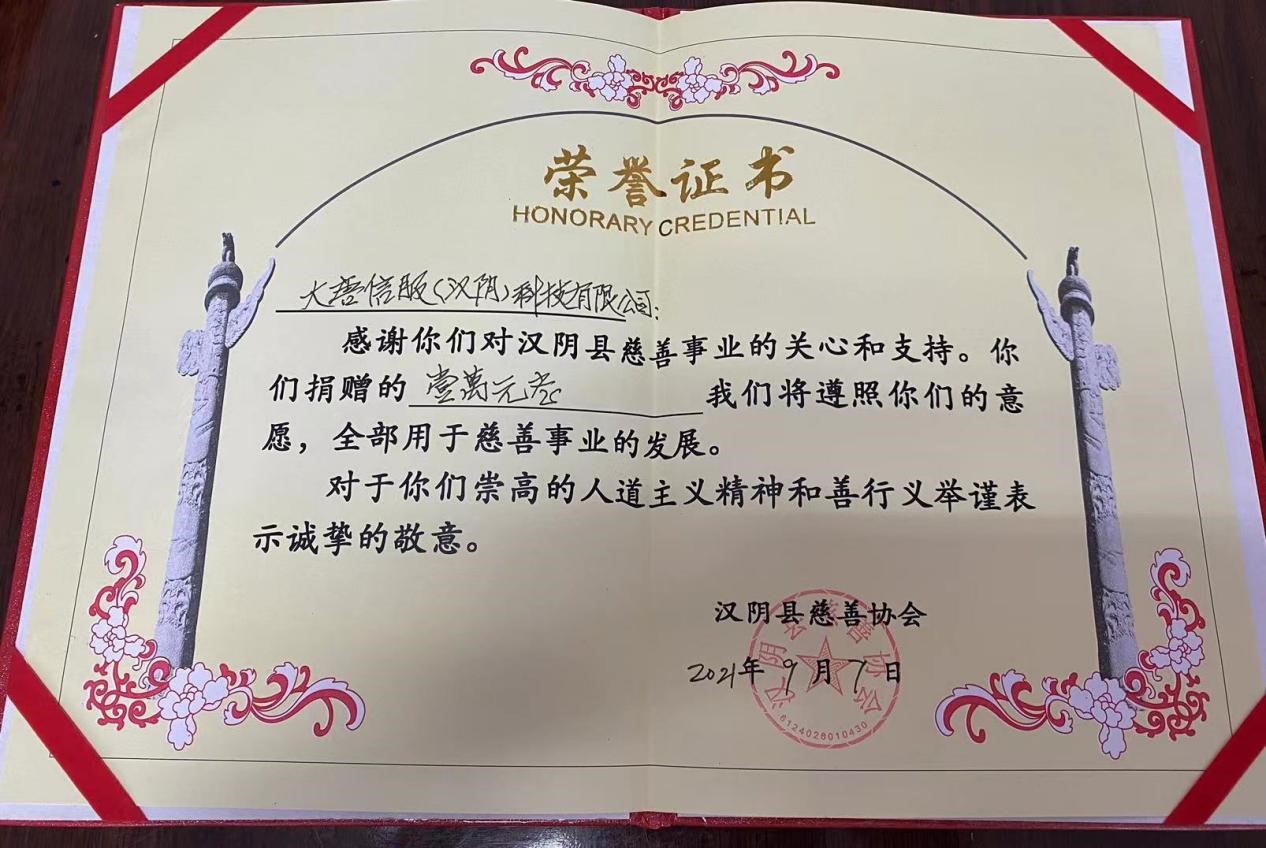 荣誉证书
HONORARY CREDENTIAL
大唐信服(汉阴)科技有限公司:
感谢你们对汉阴县慈善事业的关心和支持。你
们捐赠的 壹萬元整 我们将遵照你们的意
愿，全部用于慈善事业的发展。
对于你们崇高的人道主义精神和善行义举谨表
示诚挚的敬意。
汉阴县慈善协会
2021年9月7日
汉阴县慈善协会
6124028010430